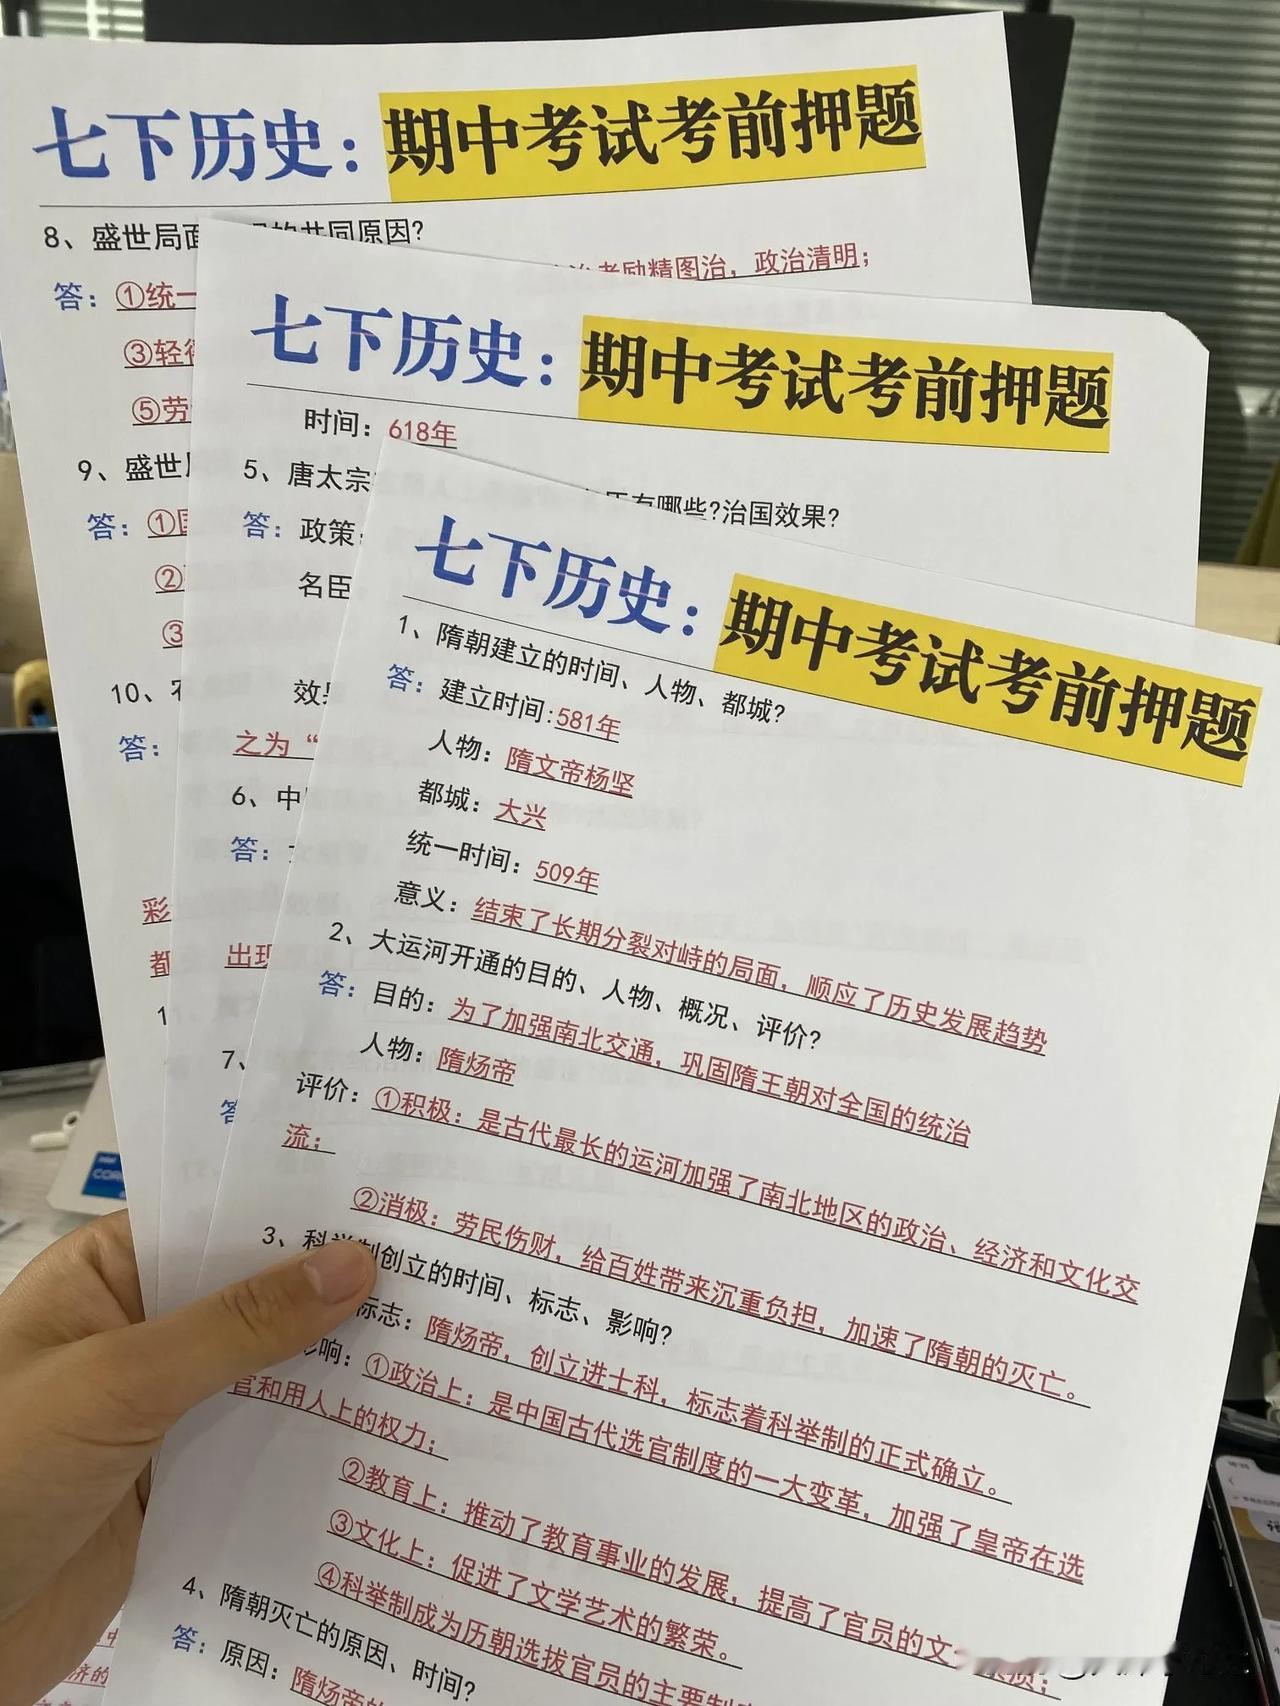 七下历史：期中考试考前押题
8、盛世局面 的共同原因?
答：①统一 励精图治，政治清明；
③轻
⑤劳
9、盛世
答：①
②
③
10、
答：
彩
都
七下历史：期中考试考前押题
时间：618年
5、唐太宗 有哪些?治国效果?
答：政策：
名臣
效果
之为“
6、中
答：
出现
7、
答
七下历史：期中考试考前押题
1、隋朝建立的时间、人物、都城?
答：建立时间:581年
人物：隋文帝杨坚
都城：大兴
统一时间：509年
意义：结束了长期分裂对峙的局面，顺应了历史发展趋势
2、大运河开通的目的、人物、概况、评价?
答：目的：为了加强南北交通，巩固隋王朝对全国的统治
人物：隋炀帝
评价：①积极：是古代最长的运河加强了南北地区的政治、经济和文化交
流；
②消极：劳民伤财，给百姓带来沉重负担，加速了隋朝的灭亡。
3、科举制创立的时间、标志、影响?
标志：隋炀帝，创立进士科，标志着科举制的正式确立。
影响：①政治上：是中国古代选官制度的一大变革，加强了皇帝在选
官和用人上的权力；
②教育上：推动了教育事业的发展，提高了官员的文 素质；
③文化上：促进了文学艺术的繁荣。
④科举制成为历朝选拔官员的主要制
4、隋朝灭亡的原因、时间?
答：原因：隋炀帝的